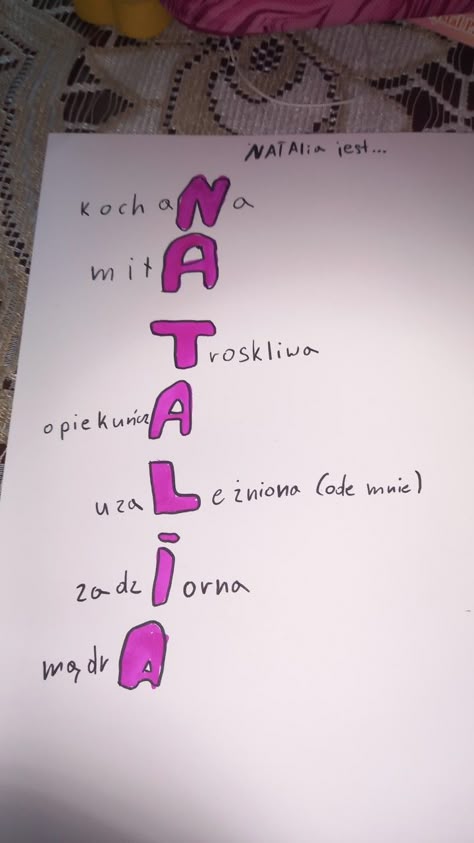 NATAlia jest...
kochaNa
miłA
Troskliwa
opiekuńczA
uzaLeżniona (ode mnie)
zadziorna
mądrA